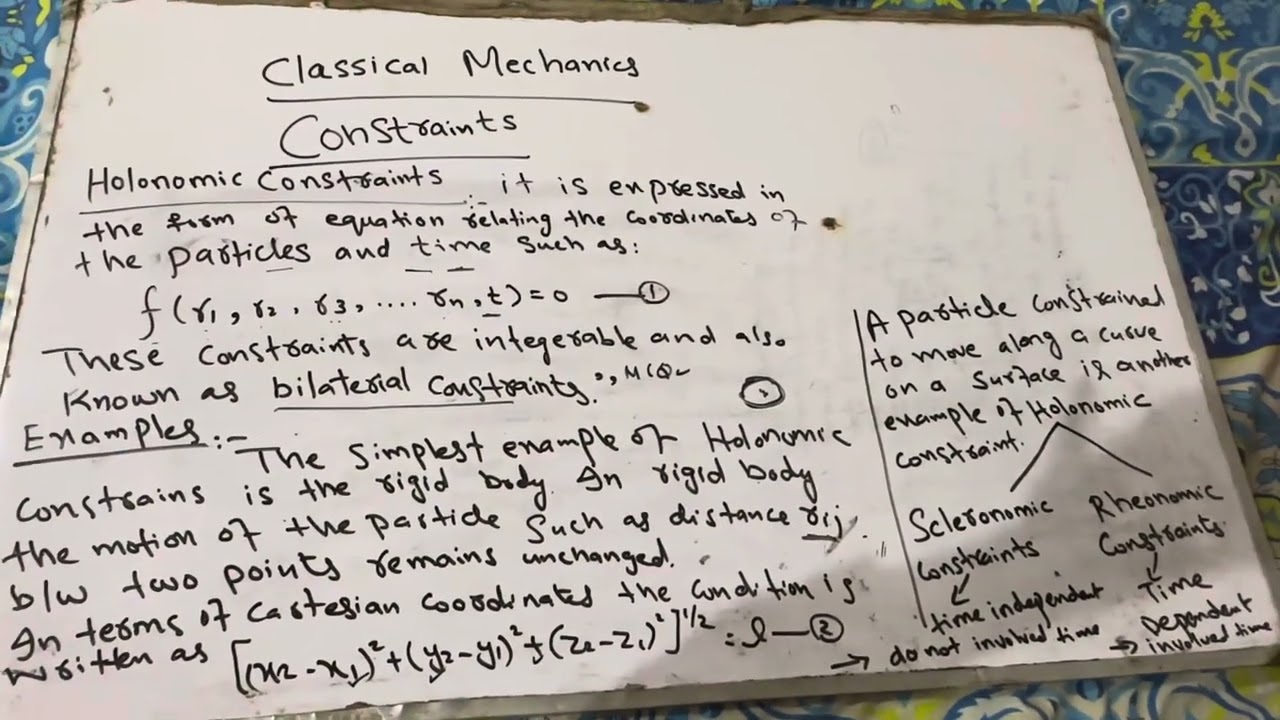 Classical Mechanics
Constraints
Holonomic Constraints :- it is expressed in
the form of equation relating the coordinates of
the particles and time such as:
f(r1, r2, r3, .... rn, t) = 0 —①
These constraints are integerable and also
known as bilaterial constraints., MCQ
Examples:- The simplest example of Holonomic
constrains is the rigid body. In rigid body
the motion of the particle such as distance rij
b/w two points remains unchanged.
In terms of cartesian coordinates the condition is
written as [(x2-x1)²+(y2-y1)²+(z2-z1)²]^1/2 = l —②
A particle constrained
to move along a curve
on a surface is another
example of Holonomic
constraint.
Scleronomic
constraints
time independent
→ do not involved time
Rheonomic
Constraints
Time
Dependent
→ involved time